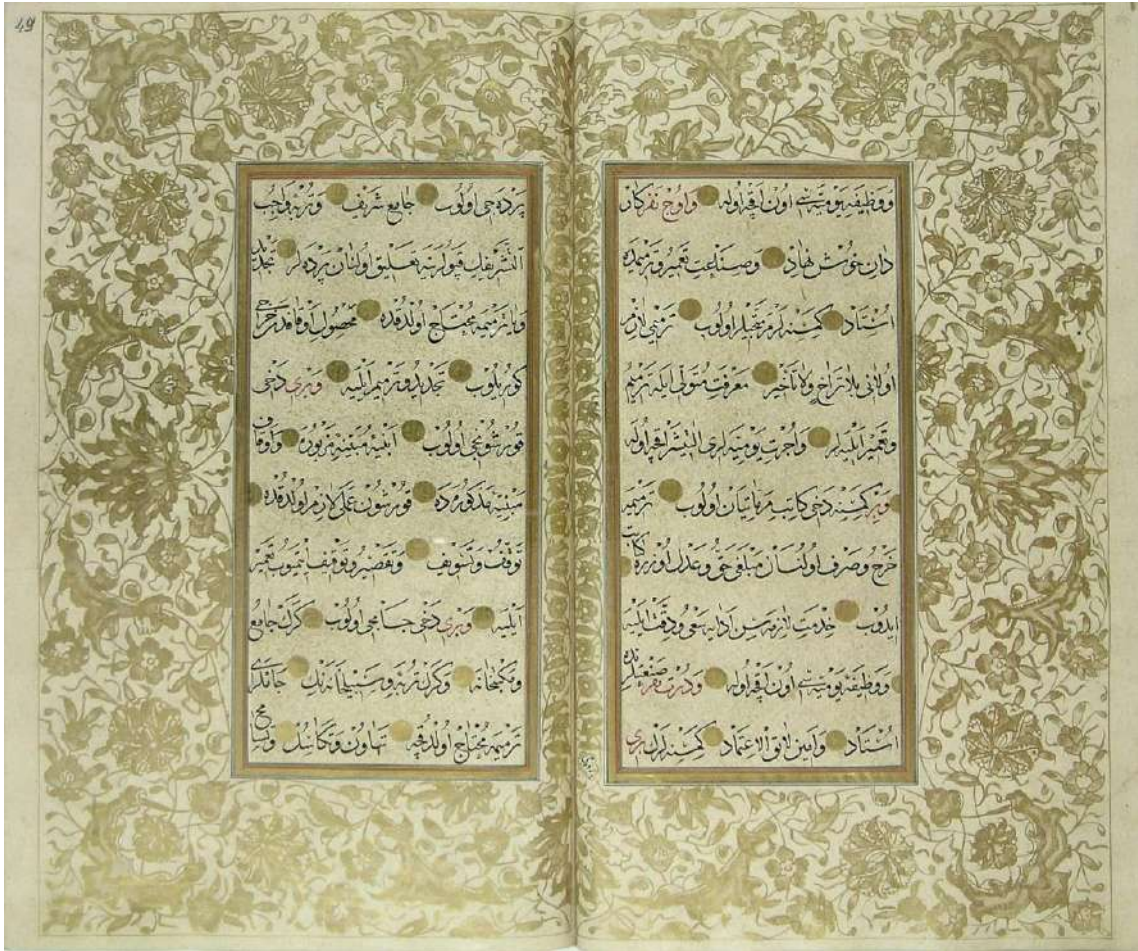 ووظيفۀ يوميه‌سى اون اقچه اوله واوچ نفر كار
دان خوش نهاد وصنعت تعمير وترميمده
استاد كمسنه‌لر مرمتجيلر اولوب ترميمى لازم
اولانى بلا تراخ ولا تأخير معرفت متولى ايله ترميم
وتعمير ايليه‌لر واجرت يوميه‌لرى التيشر اقچه اوله
وبر كمسنه دخى كاتب مرماتيان اولوب ترميمه
خرج وصرف اولنان مبلغى حق وعدل اوزره كتابت
ايدوب خدمت لازمه‌سن ادايه سعى ودقت ايليه
ووظيفۀ يوميه‌سى اون اقچه اوله ودرت نفر صنعتلرنده
استاد وامين لايق الاعتماد كمسنه‌لرك برى
پرده‌جى اولوب جامع شريف وتربۀ واجب
التشريفك قپولرينه تعليق اولنان پرده‌لر تجديد
ويا ترميمه محتاج اولدقده محصول اوقافدن خرجى
كوريلوب تجديد وترميم ايليه وبرى دخى
قورشونجى اولوب ابنيۀ مبنيۀ مزبوره واوقاف
مبنيۀ مذكورده قورشون عملى لازم اولدقده
توقف وتسويف وتقصير وتوقيف ايتميوب تعمير
ايليه وبرى دخى جامجى اولوب كرك جامع
وتكيه‌خانه وكرك تربه وسبيلخانه‌نك جاملرى
ترميمه محتاج اولدقچه تهاون وتكاسل وتسامح
49